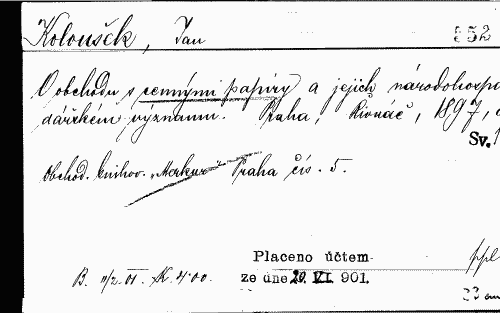 Koloušek, Jan 552
O obchodu s cennými papíry a jejich národohospo
dářském významu. Praha, Řivnáč, 1897,
Sv. 1
Obchod. knihov. "Merkur" Praha čís. 5.
Placeno účtem
ppl
B. 11/2. 01. K. 4.00. ze dne 20. VI. 901.